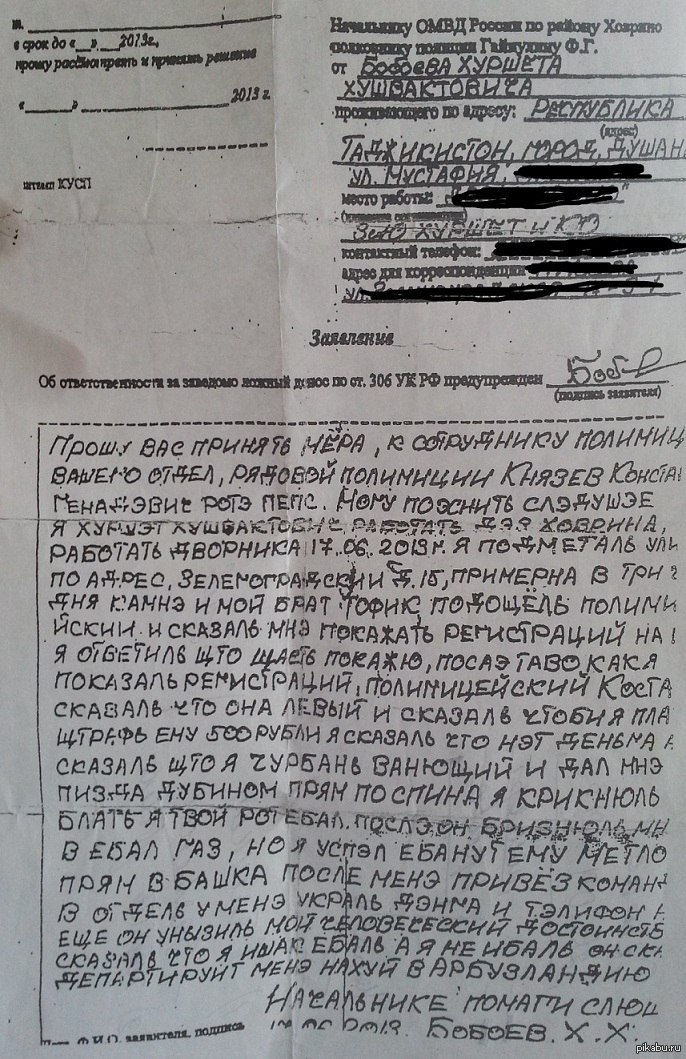 в срок до «__» __ 2013г.,
прошу рассмотреть и принять решение
«______» ____________ 2013 г.
штамп КУСП
Начальнику ОМВД России по району Ховрино
полковнику полиции Гайнулину Ф.Г.
от Бобоева ХУРШЕТА
ХУШВАКТОВИЧА
проживающего по адресу: РЕСПУБЛИКА
(адрес)
ТАДЖИКИСТОН, ГОРОД, ДУШАН
УЛ. МУСТАФИЯ,
место работы:
ХУРШЕТ И КО
контактный телефон:
адрес для корреспонденции
Заявление
Об ответственности за заведомо ложный донос по ст. 306 УК РФ предупрежден
(подпись заявителя)
ПРОШУ ВАС ПРИНЯТЬ МЁРА, К СОТРУДНИКУ ПОЛИМИЦ
ВАШЕГО ОТДЕЛ, РЯДОВОЙ ПОЛИМИЦИИ КНЯЗЕВ КОНСТА
ГЕНАДЭВИЧ РОТЭ ПЕПС. МОГУ ПОЭСНИТЬ СЛЭДУШЭЕ
Я ХУРШЭТ ХУШВАКТОВИЧ РАБОТАТЬ ДЭЗ ХОВРИНА,
РАБОТАТЬ ДВОРНИКА 17.06.2013 г. Я ПОДМЕТАЛЬ УЛИ
ПО АДРЕС, ЗЕЛЕНОГРАДСКИЙ Д.15, ПРИМЕРНА В ТРИ
ДНЯ КАМНЭ И МОЙ БРАТ ТОФИК, ПОДОЩЁЛЬ ПОЛИМИ
ИЙСКИИ. И СКАЗАЛЬ МНЭ ПОКАЖАТЬ РЕГИСТРАЦИЙ НА
Я ОТВЕТИЛЬ ЩТО ЩАСТЬ ПОКАЖЮ, ПОСАЭ ТАВО КАК Я
ПОКАЗАЛЬ РЕГИСТРАЦИЙ, ПОЛИМИЦЕЙСКИЙ КОСТА
СКАЗАЛЬ ЧТО ОНА ЛЕВЫЙ И СКАЗАЛЬ ЧТОБИ Я ПЛА
ЩТРАФЬ ЕНУ 500 РУБЛИ Я СКАЗАЛЬ ЧТО НЭТ ДЕНЬГА
СКАЗАЛЬ ЩТО Я ЧУРБАНЬ ВАНЮЩИЙ И ДАЛ МНЭ
ПИЗДА ДУБИНОМ ПРЯМ ПО СПИНА Я КРИКНЮЛЬ
БЛАТЬ Я ТВОЙ РОТ ЕБАЛ. ПОСЛЭ ОН БРИЗНЮЛЬ МН
В ЕБАЛ ГАЗ, НО Я УСПЭЛ ЕБАНУТ ЕМУ МЕТЛО
ПРЯМ В БАШКА ПОСЛЕ МЕНЭ ПРИВЁЗ КОМАН
В ОТДЕЛЬ У МЕНЭ УКРАЛЬ ДЭНГА И ТЭЛИФОН
ЕЩЕ ОН УНЫЗИЛЬ МОЙ ЧЕЛОВЕЧЕСКИЙ ДОСТОИНСТВ
СКАЗАЛЬ ЧТО Я ИШАК ЕБАЛЬ А Я НЕ ИБАЛЬ ОН СКА
ДЕПАРТИРУИТ МЕНЭ НАХУЙ В АРБУЗЛАНДИЮ
НАЧАЛЬНИКЕ ПОМАГИ СЛЮШ
Дата, Ф.И.О. заявителя, подпись 2013. БОБОЕВ. Х. Х.
pikabu.ru